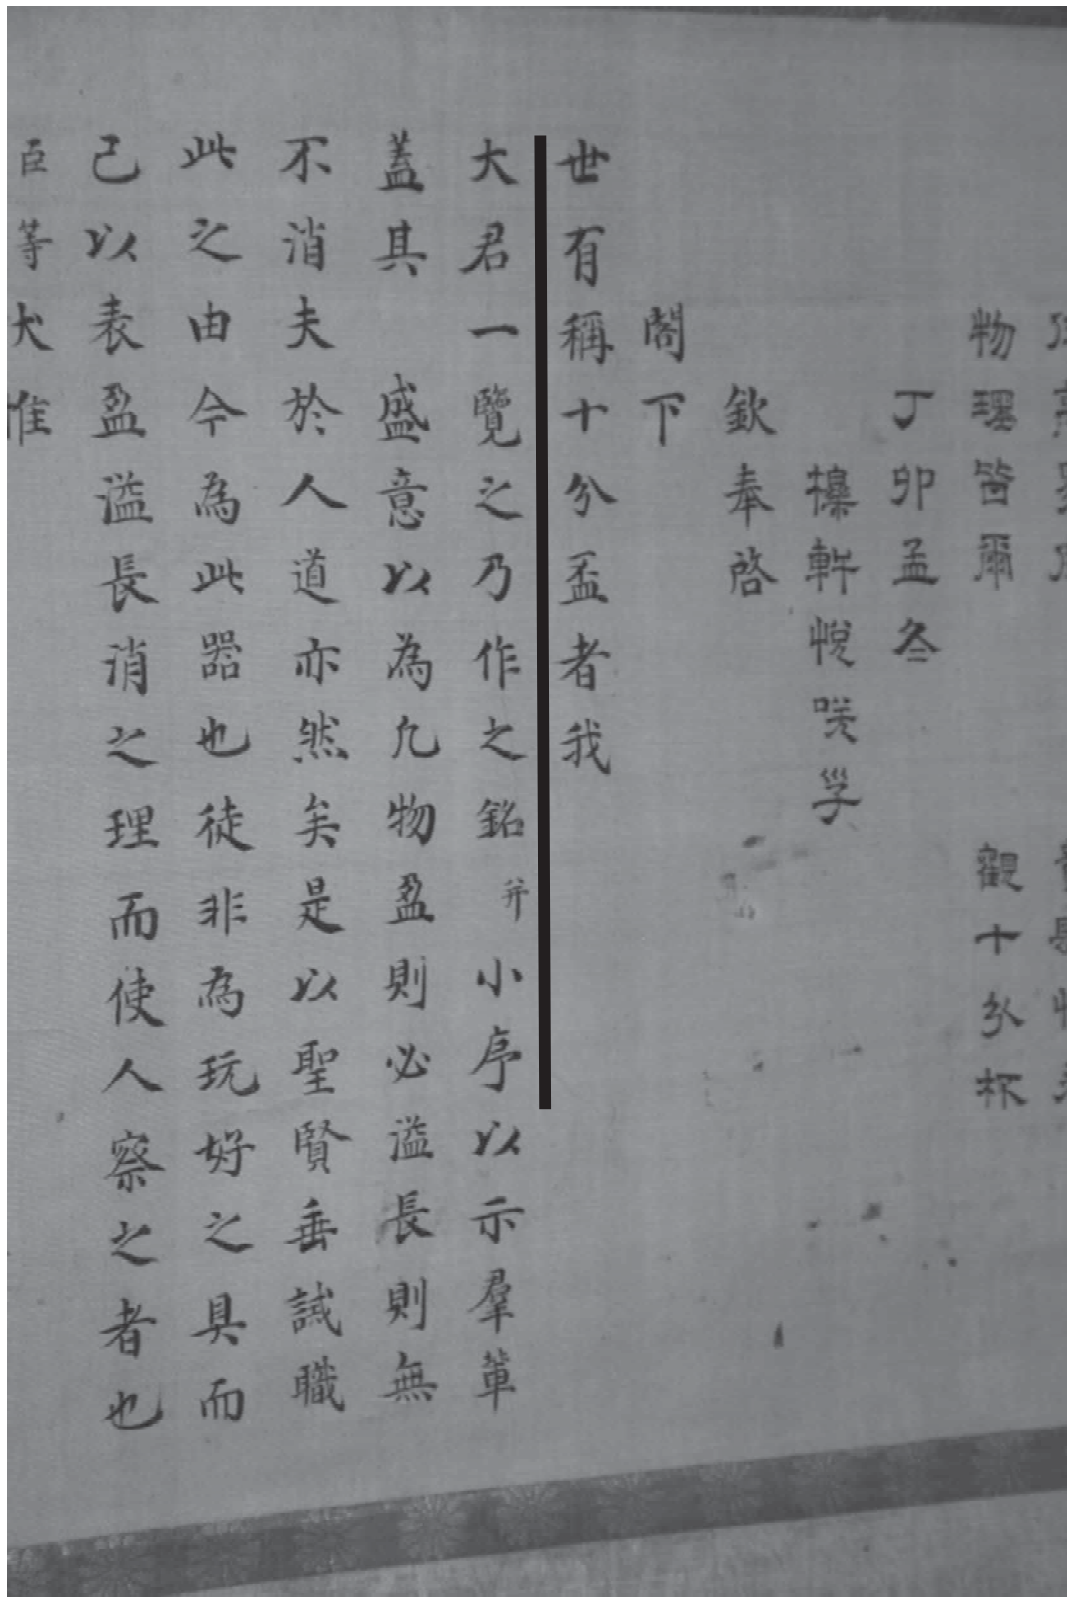 物理皆爾　觀十分杯
丁卯孟冬
軒悅
欽奉啓
閤下
世有稱十分盃者我
大君一覽之乃作之銘并小序以示羣輩
蓋其　盛意以為凡物盈則必溢長則無
不消夫於人道亦然矣是以聖賢垂誡職
此之由今為此器也徒非為玩好之具而
己以表盈溢長消之理而使人察之者也
臣等犬惟